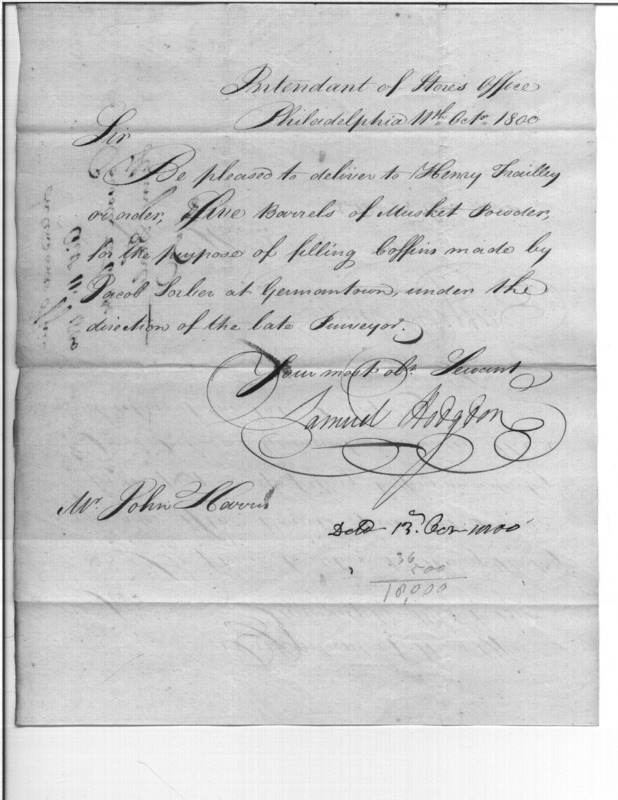 Intendant of Stores Office
Philadelphia 11th Octr. 1800
Sir
Be pleased to deliver to Henry Trailley
or order, Five Barrels of Musket Powder,
for the purpose of filling Coffins made by
Jacob Sorlier at Germantown, under the
direction of the late Purveyor.
Your most obt. Servant
Samuel Hodgdon
Mr John Harris
Deld 13th Octr 1800
36
500
18,000